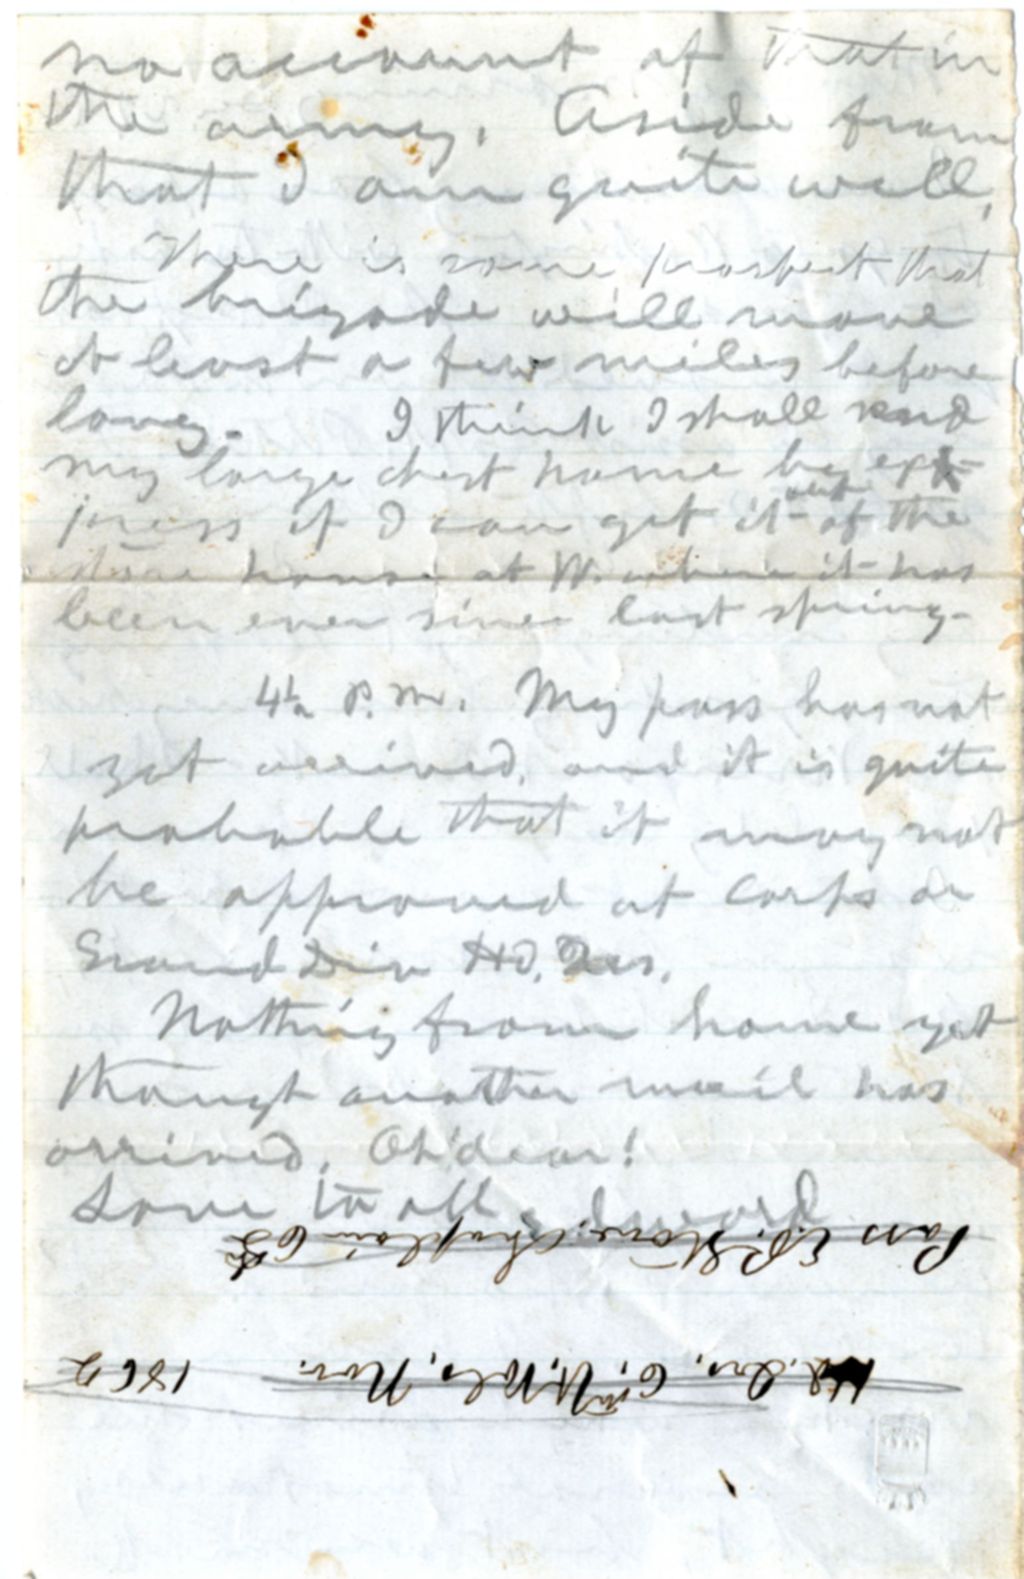 no account of that in
the army. Aside from
that I am quite well,
There is some prospect that
the brigade will move
at least a few miles before
long. I think I shall send
my large chest home by ex-
press if I can get it out of the
store house at W. where it has
been ever since last spring.
4½ P. M. My pass has not
yet arrived, and it is quite
probable that it may not
be approved at Corps or
Grand Div Hd. Qrs.
Nothing from home yet
though another mail has
arrived. Oh dear!
Love to all, Edward
Hd. Qrs. 6th Vt. Vols. Nov. 1862
Pass E. P. Stone Chaplain 6th